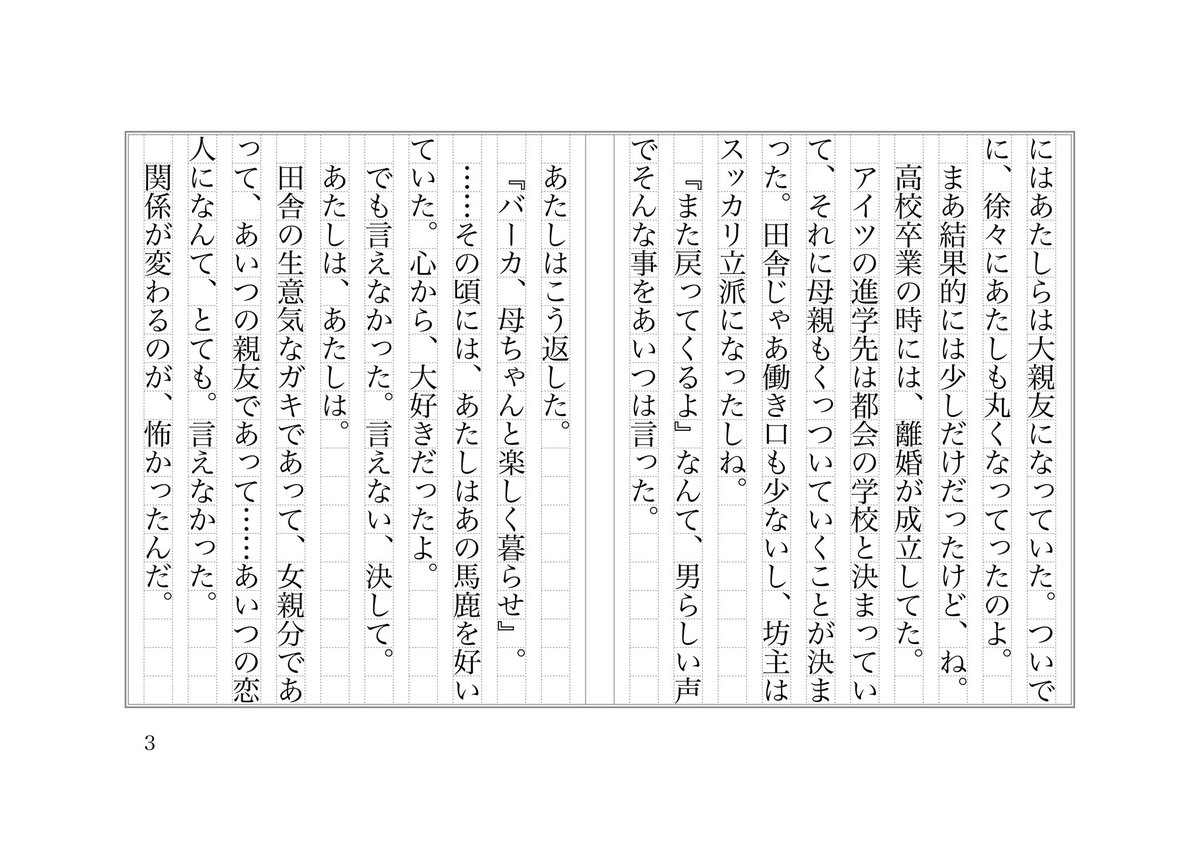 にはあたしらは大親友になっていた。ついで
に、徐々にあたしも丸くなってったのよ。
まあ結果的には少しだけだったけど、ね。
高校卒業の時には、離婚が成立してた。
アイツの進学先は都会の学校と決まってい
て、それに母親もくっついていくことが決ま
った。田舎じゃあ働き口も少ないし、坊主は
スッカリ立派になったしね。
『また戻ってくるよ』なんて、男らしい声
でそんな事をあいつは言った。
あたしはこう返した。
『バーカ、母ちゃんと楽しく暮らせ』。
……その頃には、あたしはあの馬鹿を好い
ていた。心から、大好きだったよ。
でも言えなかった。言えない、決して。
あたしは、あたしは。
田舎の生意気なガキであって、女親分であ
って、あいつの親友であって……あいつの恋
人になんて、とても。言えなかった。
関係が変わるのが、怖かったんだ。
3